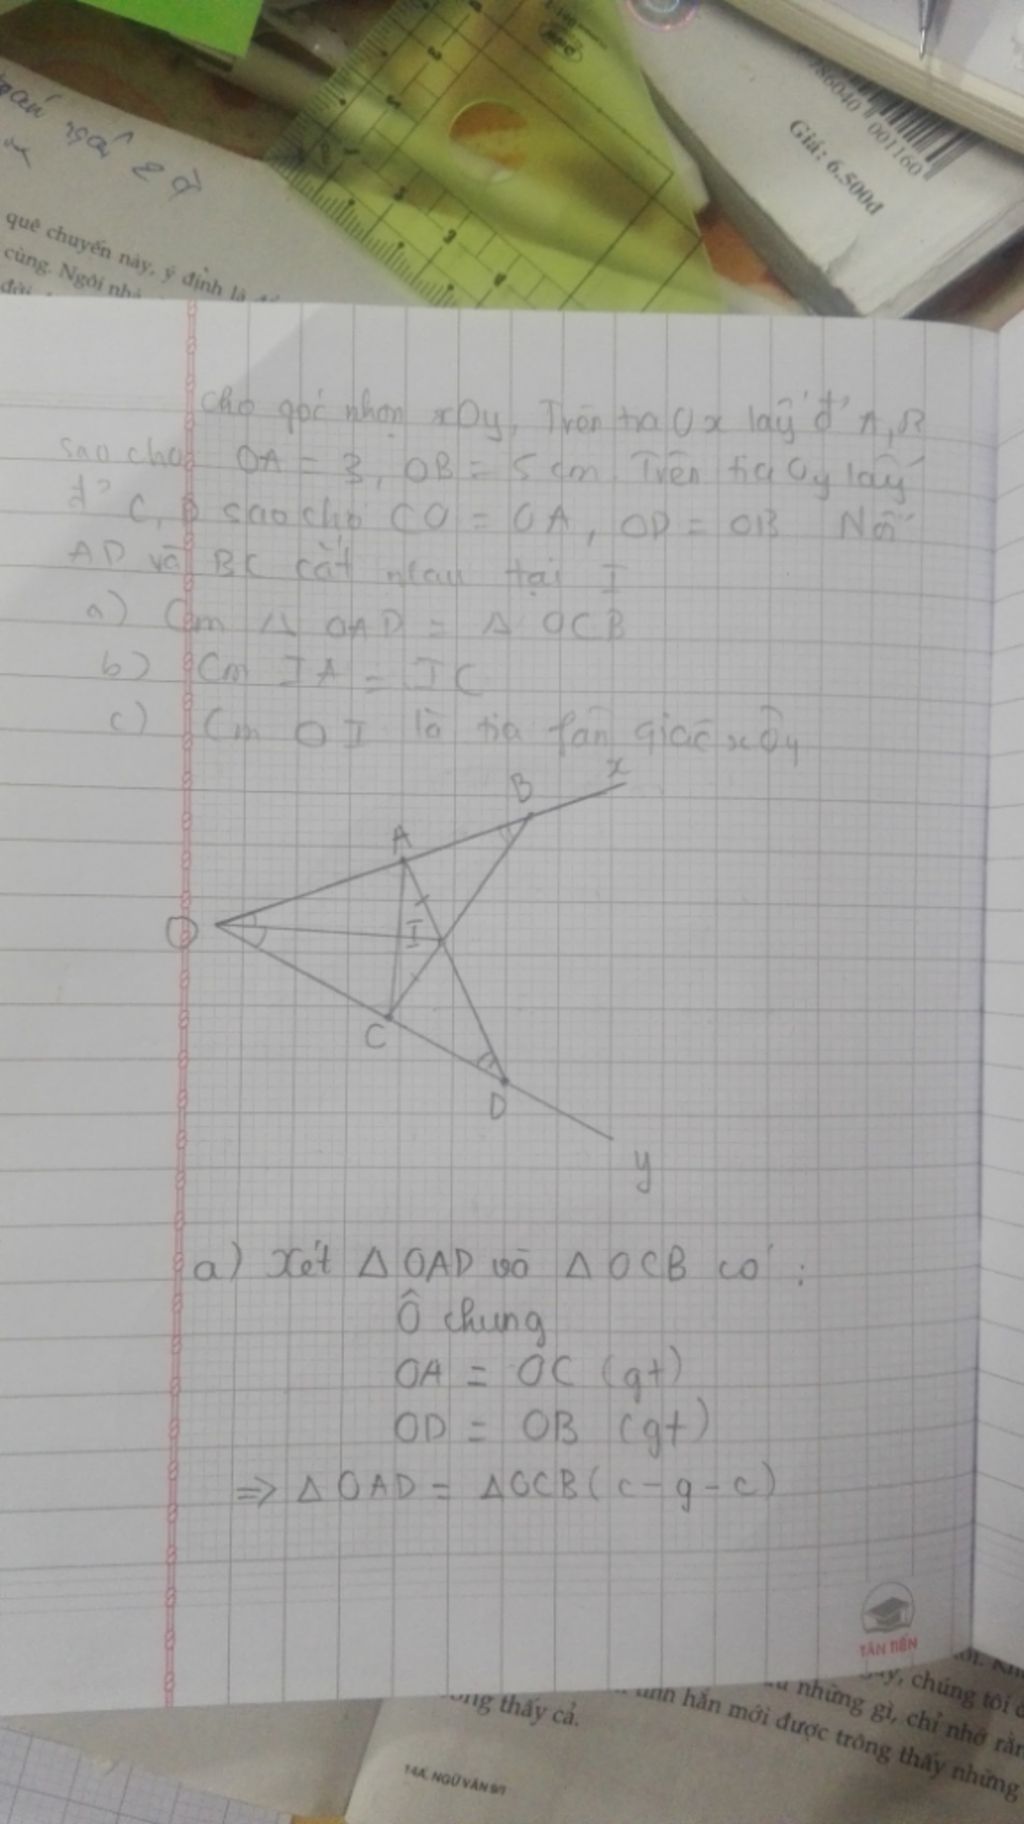 quê chuyến này, ý định là
cùng. Ngôi nhà
Giá: 6.500đ
001160
Cho góc nhọn xOy, Trên tia Ox lấy đ² A, B
sao cho OA = 3, OB = 5 cm. Trên tia Oy lấy
đ² C, D sao cho CO = OA, OD = OB Nối
AD và BC cắt nhau tại I
a) Cm Δ OAD = Δ OCB
b) Cm IA = IC
c) Cm OI là tia fân giác xÔy
x
B
A
O
I
C
D
y
a) Xét Δ OAD và Δ OCB có :
Ô chung
OA = OC (gt)
OD = OB (gt)
=> Δ OAD = Δ OCB (c-g-c)
TÂN TIẾN
chúng tôi
những gì, chỉ nhớ rằn
hắn mới được trông thấy những
thấy cả.
14A. NGỮ VĂN 9/1